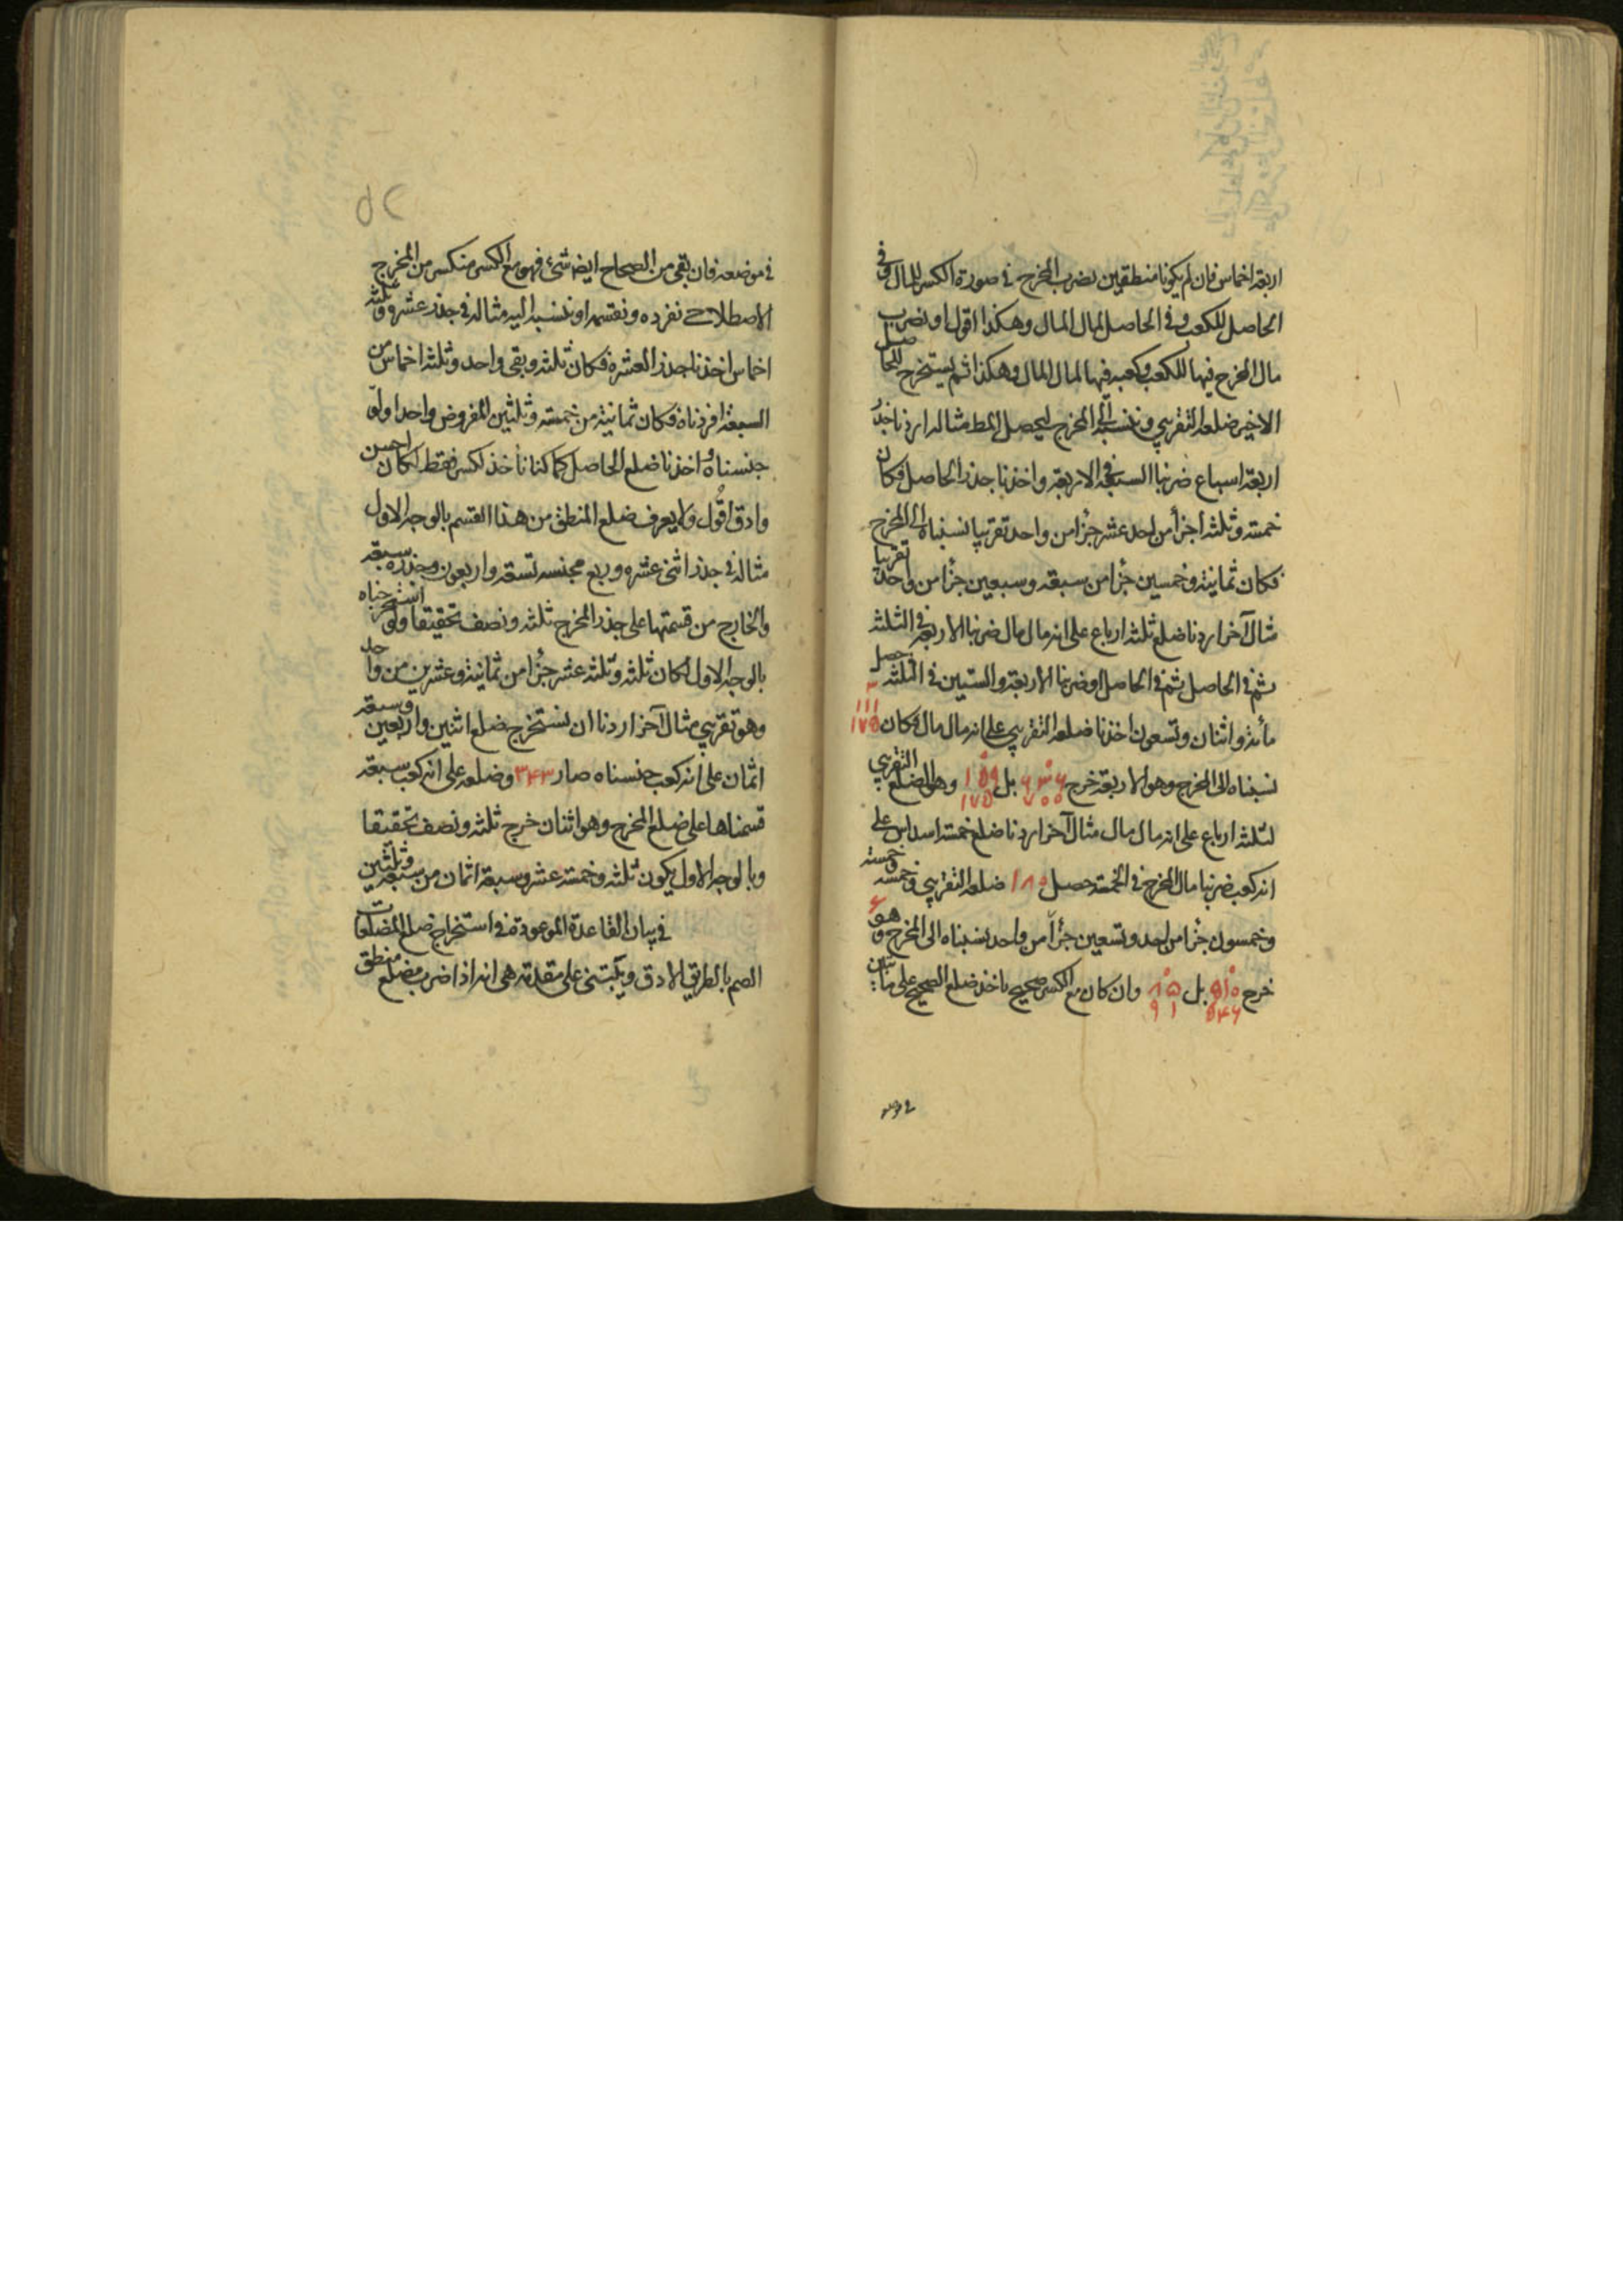 اربعة اخماس فان لم يكونا منطقين نضرب المخرج في صورة الكسر للمال وفي
الحاصل للكعب وفي الحاصل لمال المال وهكذا اقول او نضرب
مال المخرج فيها للكعب وكعبه فيها لمال المال وهكذا ثم يستخرج للحاصل
الاخير ضلعه التقريبي وننسبه الى المخرج ليحصل المط مثاله اردنا جذر
اربعة اسباع ضربنا السبعة في الاربعة واخذنا جذر الحاصل فكان
خمسة وثلثة اجزأ من احد عشر جزأ من واحد تقريبا نسبناه الى المخرج
فكان ثمانية وخمسين جزأ من سبعة وسبعين جزأ من واحد تقريبا
مثال آخر اردنا ضلع ثلثة ارباع على انه مال مال ضربنا الاربعة في الثلثة
ثم في الحاصل ثم في الحاصل او ضربنا الاربعة والستين في الثلثة حصل
مأئة واثنان وتسعون اخذنا ضلعه التقريبي على انه مال مال فكان ٣ ١١١ ١٧٥
نسبناه الى المخرج وهو الاربعة خرج ٦٣٦ ٧٠٠ بل ١٥٩ ١٧٥ وهو الضلع التقريبي
لثلثة ارباع على انه مال مال مثال آخر اردنا ضلع خمسة اسداس على
انه كعب ضربنا مال المخرج في الخمسة حصل ١٨٠ ضلعه التقريبي خمسة وخمسة
وخمسون جزأ من احد وتسعين جزأ من واحد نسبناه الى المخرج وهو ٦
خرج ٥١٠ ٥٤٦ بل ٨٥ ٩١ وان كان مع الكسر صحيح ناخذ ضلع الصحيح على ما تبين
في موضعه
في موضعه فان بقى من الصحاح ايضا شئ فهو مع الكسر منكسر من المخرج
الاصطلاحى نفرده ونقسمه او ننسبه اليه مثاله في جذر عشرة وثلثة
اخماس اخذنا جذر العشرة فكان ثلثة وبقى واحد وثلثة اخماس من
السبعة افردناه فكان ثمانية من خمسة وثلثين المفروض واحدا ولو
جنسناه واخذنا ضلع الحاصل كما كنا ناخذ لكسر فقط لكان احسن
وادق اقول ولا يعرف ضلع المنطق من هذا القسم بالوجه الاول
مثاله في جذر اثنى عشره وربع مجنسه تسعة واربعون وجذره سبعة
والخارج من قسمتها على جذر المخرج ثلثة ونصف تحقيقا ولو استخرجناه
بالوجه الاول لكان ثلثة وثلثة عشر جزأ من ثمانية وعشرين من واحد
وهو تقريبي مثال آخر اردنا ان نستخرج ضلع اثنين واربعين وسبعة
اثمان على انه كعب جنسناه صار ٣٤٣ وضلعه على انه كعب سبعة
قسمناها على ضلع المخرج وهو اثنان خرج ثلثة ونصف تحقيقا
وبالوجه الاول يكون ثلثة وخمسة عشر وسبعة اثمان من سبعة وثلثين
في بيان القاعدة الموعودة في استخراج ضلع المضلعات
الصم بالطريق الادق ويبتنى على مقدمة هي انه اذا ضرب مضلع منطق